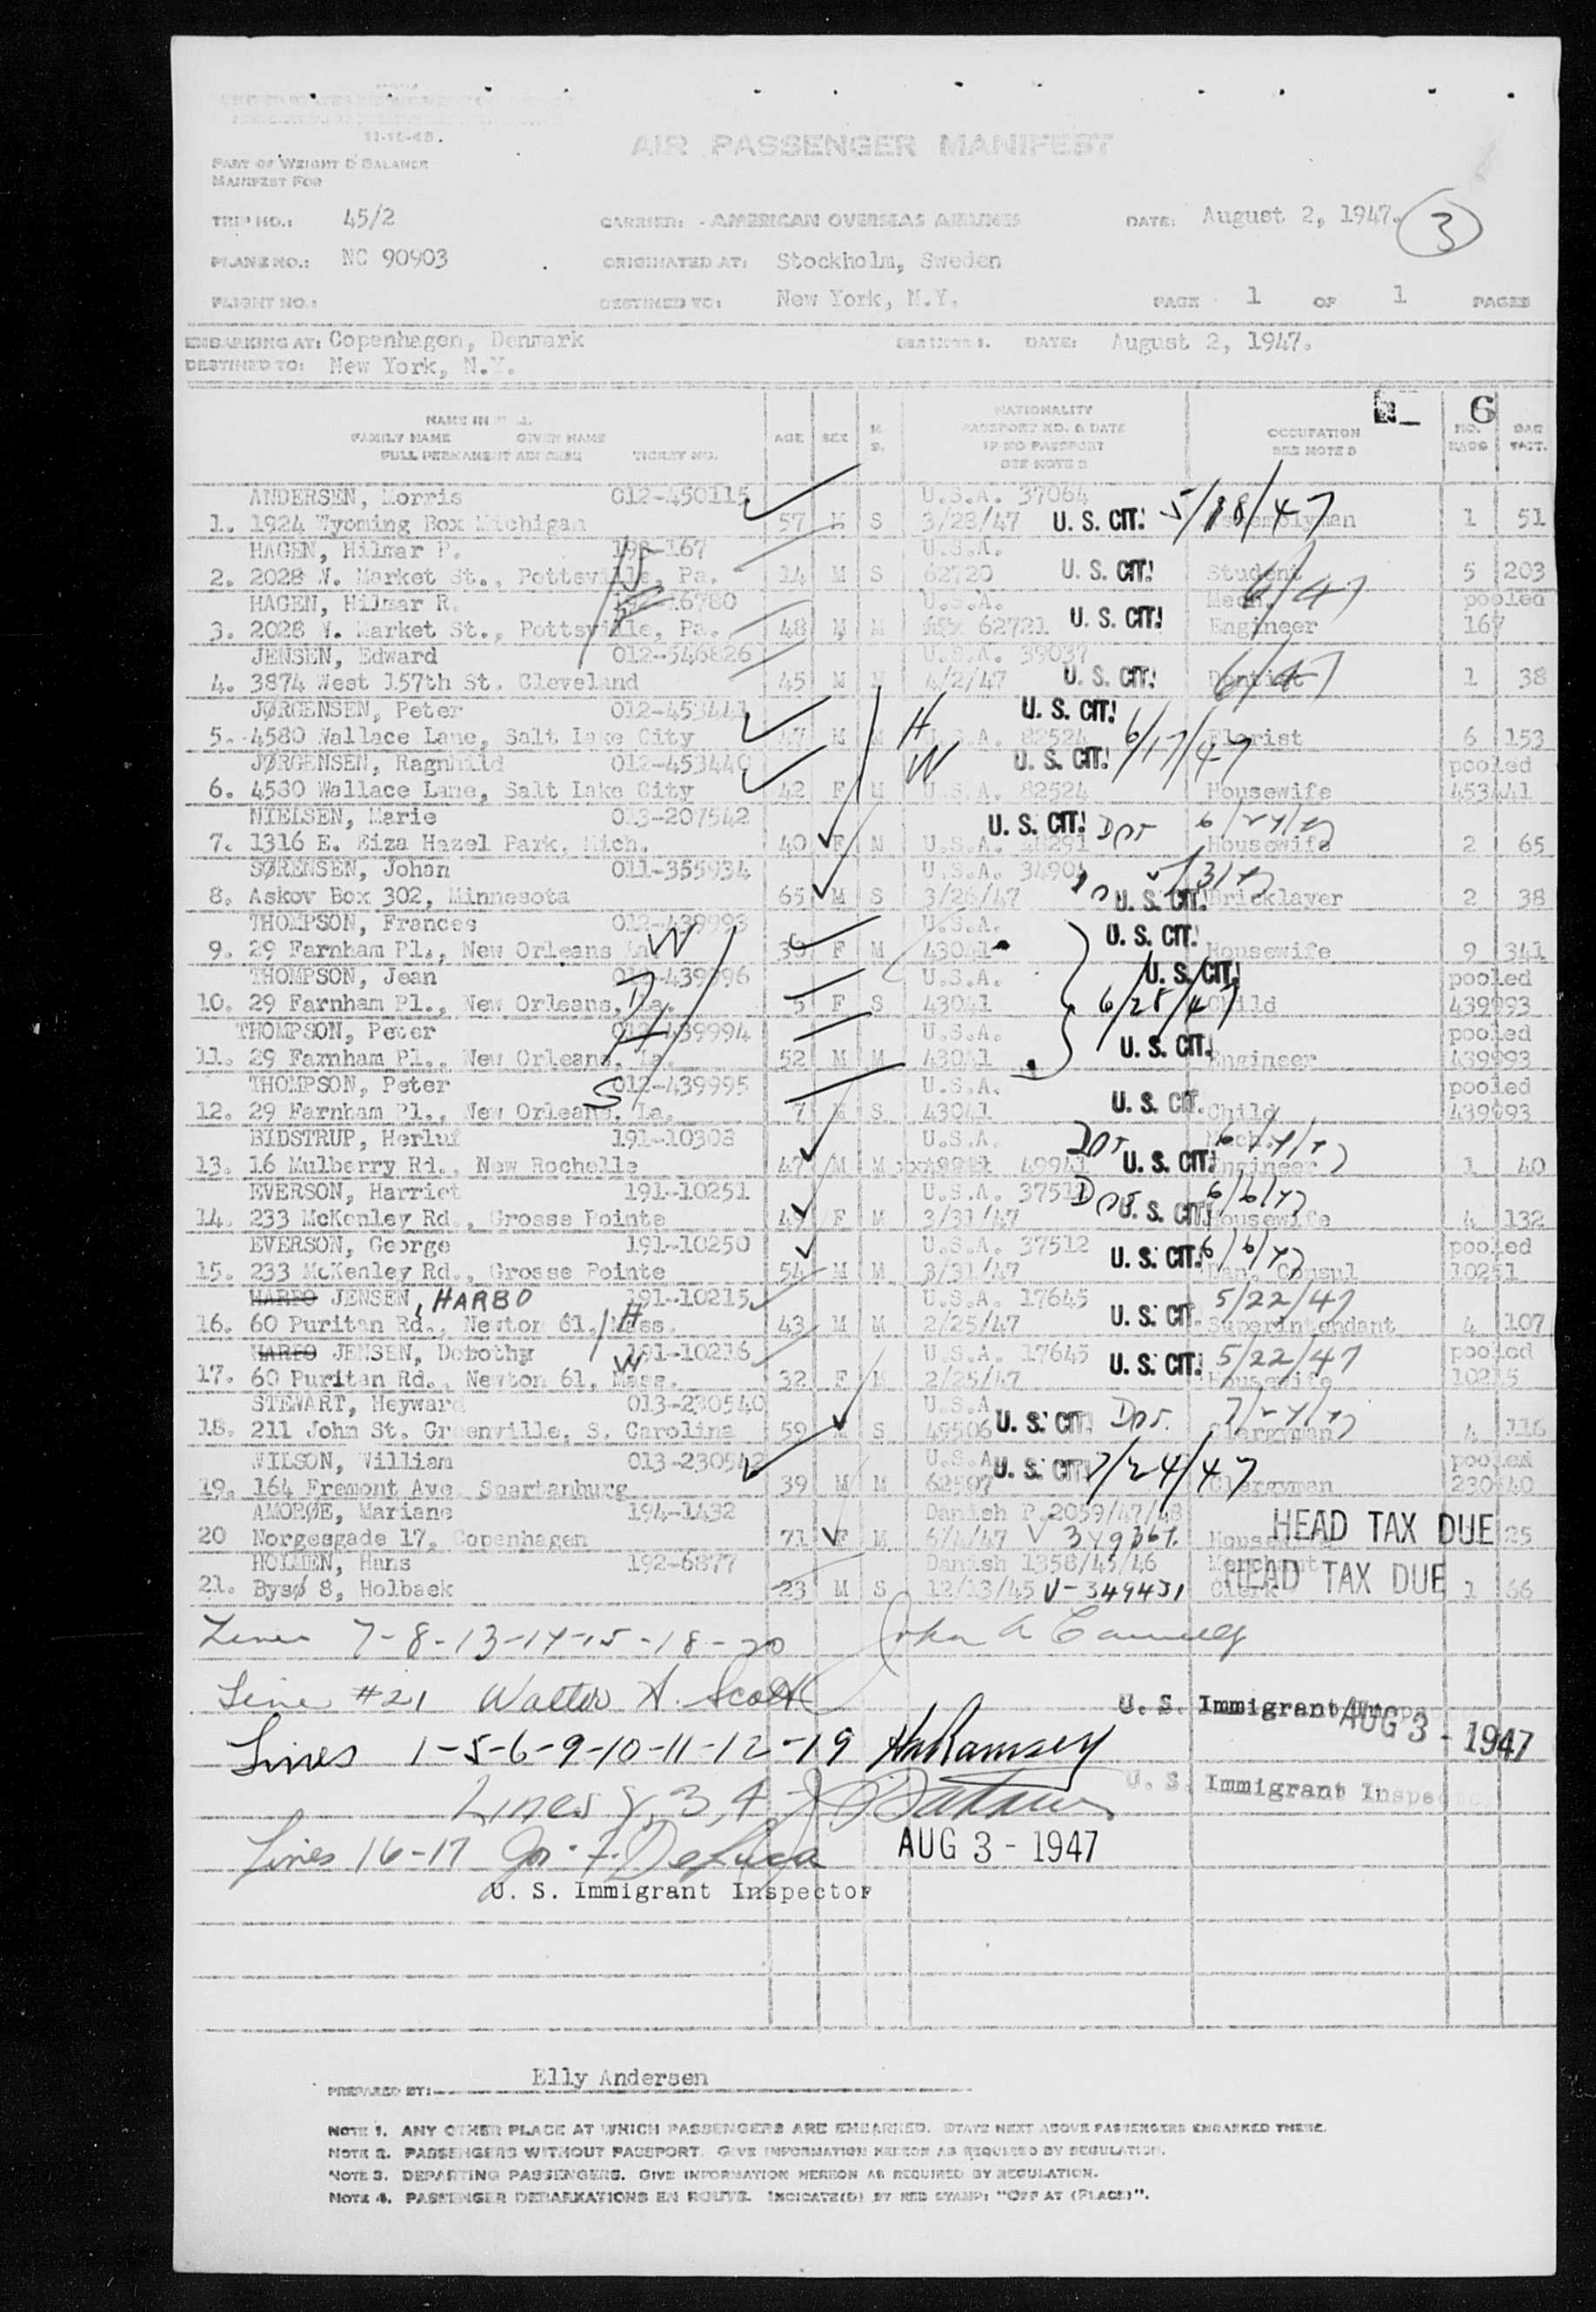 11-16-48.
AIR PASSENGER MANIFEST
PART OF WEIGHT & BALANCE
MANIFEST FOR
TRIP NO.: 45/2 CARRIER: - AMERICAN OVERSEAS AIRLINES DATE: August 2, 1947. 3
PLANE NO.: NC 90903 ORIGINATED AT: Stockholm, Sweden
FLIGHT NO.: DESTINED TO: New York, N.Y. PAGE 1 OF 1 PAGES
EMBARKING AT: Copenhagen, Denmark SEE NOTE 1. DATE: August 2, 1947.
DESTINED TO: New York, N.Y.
6
NAME IN NATIONALITY
FAMILY NAME GIVEN NAME AGE SEX M. S. PASSPORT NO. & DATE OCCUPATION NO. BAG
FULL PERMANENT ADDRESS TICKET NO. IF NO PASSPORT SEE NOTE BAGS WGT.
SEE NOTE
ANDERSEN, Morris 012-450115 U.S.A. 37064
1. 1924 Wyoming Box Michigan 57 M S 3/28/47 U. S. CIT. 51
HAGEN, Hilmar P. U.S.A.
2. 2028 W. Market St., Pottsville, Pa. 14 M S 62720 U. S. CIT. Student 5 203
HAGEN, Hilmar R. U.S.A. Mech. pooled
3. 2028 W. Market St., Pottsville, Pa. 48 M M 62721 U. S. CIT. Engineer 167
JENSEN, Edward 012-546826 U.S.A. 39037
4. 3874 West 157th St. Cleveland 45 M M 4/2/47 U. S. CIT. 1 38
JØRGENSEN, Peter 012-453441 U. S. CIT.
5. 4580 Wallace Lane, Salt Lake City 47 M M H U.S.A. 82524 6/17/47 Florist 6 153
JØRGENSEN, Ragnhild 012-453440 W U. S. CIT. pooled
6. 4580 Wallace Lane, Salt Lake City 42 F M U.S.A. 82524 Housewife 453441
NIELSEN, Marie 013-207542 U. S. CIT.
7. 1316 E. Eiza Hazel Park, Mich. 40 F M U.S.A. 48291 Housewife 2 65
SØRENSEN, Johan 011-355934 U.S.A.
8. Askov Box 302, Minnesota 65 M S 3/26/47 U. S. CIT. Bricklayer 2 38
THOMPSON, Frances 012-439993 U.S.A. U. S. CIT.
9. 29 Farnham Pl., New Orleans La. W F M 43041 Housewife 9 341
THOMPSON, Jean 012-439996 U.S.A. U. S. CIT. pooled
10. 29 Farnham Pl., New Orleans, La. 5 F S 43041 6/25/47 Child 439993
THOMPSON, Peter 012-439994 U.S.A. pooled
11. 29 Farnham Pl., New Orleans, La. H 52 M M 43041 U. S. CIT. Engineer 439993
THOMPSON, Peter 012-439995 U.S.A. pooled
12. 29 Farnham Pl., New Orleans, La. S 7 M S 43041 U. S. CIT. Child 439993
BIDSTRUP, Herluf 191-10308 U.S.A. Mech.
13. 16 Mulberry Rd., New Rochelle 47 M M 49941 U. S. CIT. Engineer 1 40
EVERSON, Harriet 191-10251 U.S.A.
14. 233 McKenley Rd., Grosse Pointe 49 F M 3/31/47 U. S. CIT. Housewife 4 132
EVERSON, George 191-10250 U.S.A. 37512 pooled
15. 233 McKenley Rd., Grosse Pointe 54 M M 3/31/47 U. S. CIT. Dan. Consul 10251
HARBO JENSEN, HARBO 191-10215 U.S.A. 17645 5/22/47
16. 60 Puritan Rd., Newton 61, Mass. H 43 M M 2/25/47 U. S. CIT. Superintendant 4 107
HARBO JENSEN, Dorothy 191-10216 U.S.A. 17645 5/22/47 pooled
17. 60 Puritan Rd., Newton 61, Mass. W 32 F M 2/25/47 U. S. CIT. Housewife 10215
STEWART, Heyward 013-230540 U.S.A.
18. 211 John St. Greenville, S. Carolina 59 M S 49506 U. S. CIT. Clergyman 4 116
WILSON, William 013-230542 U.S.A. pooled
19. 164 Fremont Ave. Spartanburg 39 M M 62507 U. S. CIT. 7/24/47 Clergyman 230540
AMORØE, Mariane 194-1432 Danish P.2059/47/48
20 Norgesgade 17, Copenhagen 71 F M 6/4/47 HEAD TAX DUE 25
HOLMEN, Hans 192-6877 Danish 1358/45/46 Merchant
21. Bysø 8, Holbaek 23 M S 12/13/45 V-349431 Clerk HEAD TAX DUE 1 66
Lines 7-8-13-14-15-18-20
Line #21 Walter A. Scott
U. S. Immigrant AUG 3 - 1947
Lines 1-5-6-9-10-11-12-19 Ramsey
U. S. Immigrant Inspector
Lines 2, 3, 4
Lines 16-17 AUG 3 - 1947
U. S. Immigrant Inspector
PREPARED BY: Elly Andersen
NOTE 1. ANY OTHER PLACE AT WHICH PASSENGERS ARE EMBARKED. STATE NEXT ABOVE PASSENGERS EMBARKED THERE.
NOTE 2. PASSENGERS WITHOUT PASSPORT. GIVE INFORMATION HEREON AS REQUIRED BY REGULATION.
NOTE 3. DEPARTING PASSENGERS. GIVE INFORMATION HEREON AS REQUIRED BY REGULATION.
NOTE 4. PASSENGER DEBARKATIONS EN ROUTE. INDICATE(D) BY RED STAMP: "OFF AT (PLACE)".